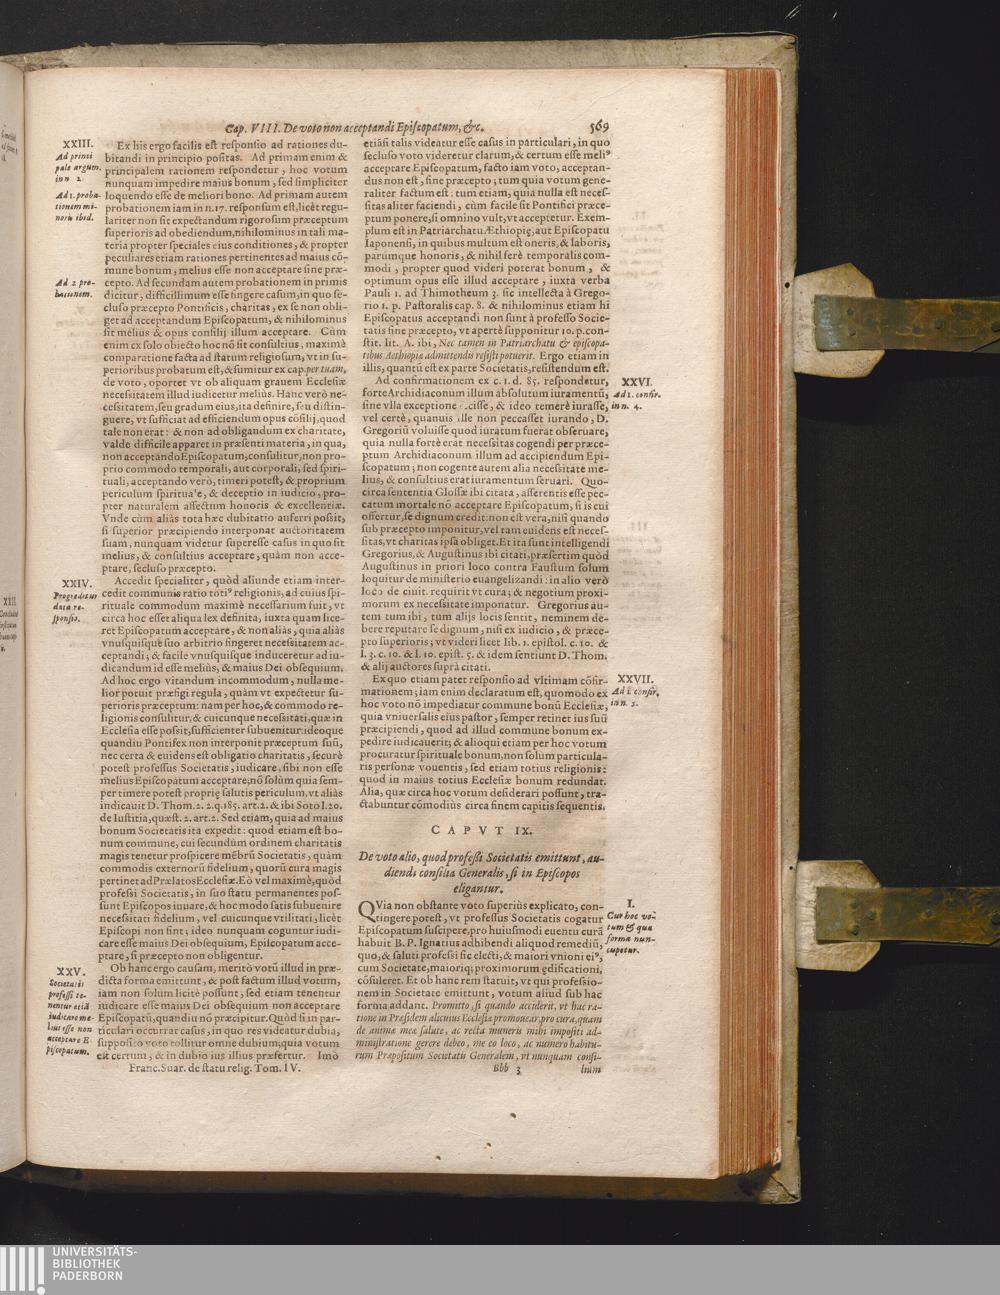 Cap. VIII. De voto non acceptandi Episcopatum, &c. 569
XXIII.
Ad princi
pale argum.
in n. 2.
Ad 1. proba-
tionem mi-
noris ibid.
Ad 2 pro-
bationem.
XXIV.
Progreditur
data re-
sponsio.
XXV.
Societatis
professi te-
nentur etiã
iudicare me-
lius esse non
acceptare E-
piscopatum.
Ex his ergo facilis est responsio ad rationes du-
bitandi in principio positas. Ad primam enim &
principalem rationem respondetur, hoc votum
nunquam impedire maius bonum, sed simpliciter
loquendo esse de meliori bono. Ad primam autem
probationem iam in n. 17. responsum est, licèt regu-
lariter non sit expectandum rigorosum præceptum
superioris ad obediendum, nihilominus in tali ma-
teria propter speciales eius conditiones, & propter
peculiares etiam rationes pertinentes ad maius cõ-
mune bonum, melius esse non acceptare sine præ-
cepto. Ad secundam autem probationem in primis
dicitur, difficillimum esse fingere casum, in quo se-
cluso præcepto Pontificis, charitas, ex se non obli-
get ad acceptandum Episcopatum, & nihilominus
sit melius & opus consilij illum acceptare. Cùm
enim ex solo obiecto hoc nõ sit consultius, maximè
comparatione facta ad statum religiosum, vt in su-
perioribus probatum est, & sumitur ex cap. per tuam,
de voto, oportet vt ob aliquam grauem Ecclesiæ
necessitatem illud iudicetur melius. Hanc verò ne-
cessitatem, seu gradum eius, ita definire, seu distin-
guere, vt sufficiat ad efficiendum opus cõsilij, quod
tale non erat: & non ad obligandum ex charitate,
valde difficile apparet in præsenti materia, in qua,
non acceptãdo Episcopatum, consulitur, non pro-
prio commodo temporali, aut corporali, sed spiri-
tuali, acceptando verò, timeri potest, & proprium
periculum spirituale, & deceptio in iudicio, pro-
pter naturalem affectum honoris & excellentiæ.
Vnde cùm aliàs tota hæc dubitatio auferri possit,
si superior præcipiendo interponat auctoritatem
suam, nunquam videtur superesse casus in quo sit
melius, & consultius acceptare, quàm non acce-
ptare, secluso præcepto.
Accedit specialiter, quòd aliunde etiam inter-
cedit communis ratio totiꝰ religionis, ad cuius spi-
rituale commodum maximè necessarium fuit, vt
circa hoc esset aliqua lex definita, iuxta quam lice-
ret Episcopatum acceptare, & non aliàs, quia aliàs
vnusquisque suo arbitrio fingeret necessitatem ac-
ceptandi; & facile vnusquisque induceretur ad iu-
dicandum id esse meliùs, & maius Dei obsequium.
Ad hoc ergo vitandum incommodum, nulla me-
lior potuit præfigi regula, quàm vt expectetur su-
perioris præceptum: nam per hoc, & commodo re-
ligionis consulitur, & cuicunque necessitati, quæ in
Ecclesia esse possit, sufficienter subuenitur: ideoque
quandiu Pontifex non interponit præceptum suũ,
nec certa & euidens est obligatio charitatis, securè
potest professus Societatis, iudicare, sibi non esse
melius Episcopatum acceptare, nõ solùm quia sem-
per timere potest proprię salutis periculum, vt aliàs
indicauit D. Thom. 2. 2. q. 185. art. 2. & ibi Soto l. 10.
de Iustitia, quæst. 2. art. 2. Sed etiam, quia ad maius
bonum Societatis ita expedit: quod etiam est bo-
num commune, cui secundùm ordinem charitatis
magis tenetur prospicere mẽbrũ Societatis, quàm
commodis externorũ fidelium, quorũ cura magis
pertinet ad Prælatos Ecclesiæ. Eò vel maximè, quòd
professi Societatis, in suo statu permanentes pos-
sunt Episcopos iuuare, & hoc modo satis subuenire
necessitati fidelium, vel cuicunque vtilitati, licèt
Episcopi non sint; ideo nunquam coguntur iudi-
care esse maius Dei obsequium, Episcopatum acce-
ptare, si præcepto non obligentur.
Ob hanc ergo causam, meritò votũ illud in præ-
dicta forma emittunt, & post factum illud votum,
iam non solum licitè possunt, sed etiam tenentur
iudicare esse maius Dei obsequium non acceptare
Episcopatũ, quandiu nõ præcipitur. Quòd si in par-
ticulari occurrat casus, in quo res videatur dubia,
supposito voto tollitur omne dubium; quia votum
est certum, & in dubio ius illius præfertur. Imò
Franc. Suar. de statu relig. Tom. IV.
etiãsi talis videatur esse casus in particulari, in quo
secluso voto videretur clarum, & certum esse meliꝰ
acceptare Episcopatum, facto iam voto, acceptan-
dus non est, sine præcepto; tum quia votum gene-
raliter factum est: tum etiam, quia nulla est neces-
sitas aliter faciendi, cùm facile sit Pontifici præce-
ptum ponere, si omnino vult, vt acceptetur. Exem-
plum est in Patriarchatu Æthiopię, aut Episcopatu
Iaponensi, in quibus multum est oneris, & laboris,
parùmque honoris, & nihil ferè temporalis com-
modi, propter quod videri poterat bonum, &
optimum opus esse illud acceptare, iuxta verba
Pauli 1. ad Thimotheum 3. sic intellecta à Grego-
rio 1. p. Pastoralis cap. 8. & nihilominus etiam hi
Episcopatus acceptandi non sunt à professo Socie-
tatis sine præcepto, vt apertè supponitur 10. p. con-
stit. lit. A. ibi, Nec tamen in Patriarchatu & episcopa-
tibus Aethiopiæ admittendis resisti potuerit. Ergo etiam in
illis, quantũ est ex parte Societatis, resistendum est.
Ad confirmationem ex c. 1. d. 85. respondetur,
forte Archidiaconum illum absolutum iuramentũ,
sine vlla exceptione fecisse, & ideo temerè iurasse,
vel certè, quanuis ille non peccasset iurando, D.
Gregoriũ voluisse quod iuratum fuerat obseruare,
quia nulla fortè erat necessitas cogendi per præce-
ptum Archidiaconum illum ad accipiendum Epi-
scopatum; non cogente autem alia necessitate me-
lius, & consultius erat iuramentum seruari. Quo-
circa sententia Glossæ ibi citata, asserentis esse pec-
catum mortale nõ acceptare Episcopatum, si is cui
offertur, se dignum credit: non est vera, nisi quando
sub præcepto imponitur, vel tam euidens est neces-
sitas, vt charitas ipsa obliget. Et ita sunt intelligendi
Gregorius, & Augustinus ibi citati, præsertim quòd
Augustinus in priori loco contra Faustum solum
loquitur de ministerio euangelizandi: in alio verò
loco de ciuit. requirit vt cura; & negotium proxi-
morum ex necessitate imponatur. Gregorius au-
tem tum ibi, tum alijs locis sentit, neminem de-
bere reputare se dignum, nisi ex iudicio, & præce-
pto superioris; vt videri licet lib. 1. epistol. c. 10. &
l. 3. c. 10. & l. 10. epist. 5. & idem sentiunt D. Thom.
& alij auctores suprà citati.
Ex quo etiam patet responsio ad vltimam cõfir-
mationem; iam enim declaratum est, quomodo ex
hoc voto nõ impediatur commune bonũ Ecclesiæ,
quia vniuersalis eius pastor, semper retinet ius suũ
præcipiendi, quod ad illud commune bonum ex-
pedire iudicauerit; & alioqui etiam per hoc votum
procuratur spirituale bonum, non solùm particula-
ris personæ vouentis, sed etiam totius religionis:
quod in maius totius Ecclesiæ bonum redundat.
Alia, quæ circa hoc votum desiderari possunt, tra-
ctabuntur cõmodiùs circa finem capitis sequentis.
CAPVT IX.
De voto alio, quod professi Societatis emittunt, au-
diendi consilia Generalis, si in Episcopos
eligantur.
QVia non obstante voto superiùs explicato, con-
tingere potest, vt professus Societatis cogatur
Episcopatum suscipere, pro huiusmodi euentu curã
habuit B. P. Ignatius adhibendi aliquod remediũ,
quo, & saluti professi sic electi, & maiori vnioni eiꝰ,
cum Societate, maioriq; proximorum ędificationi,
cõsuleret. Et ob hanc rem statuit, vt qui professio-
nem in Societate emittunt, votum aliud sub hac
forma addant. Promitto, si quando acciderit, vt hac ra-
tione in Præsidem alicuius Ecclesiæ promouear, pro cura, quam
de animæ meæ salute, ac recta muneris mihi impositi ad-
ministratione gerere debeo, me eo loco, ac numero habitu-
rum Præpositum Societatis Generalem, vt nunquam consi-
Bbb 3 lium
XXVI.
Ad 1. confir.
in n. 4.
XXVII.
Ad 2. confir.
in n. 5.
I.
Cur hoc vo-
tum & qua
forma nun-
cupetur.
UNIVERSITÄTS-
BIBLIOTHEK
PADERBORN